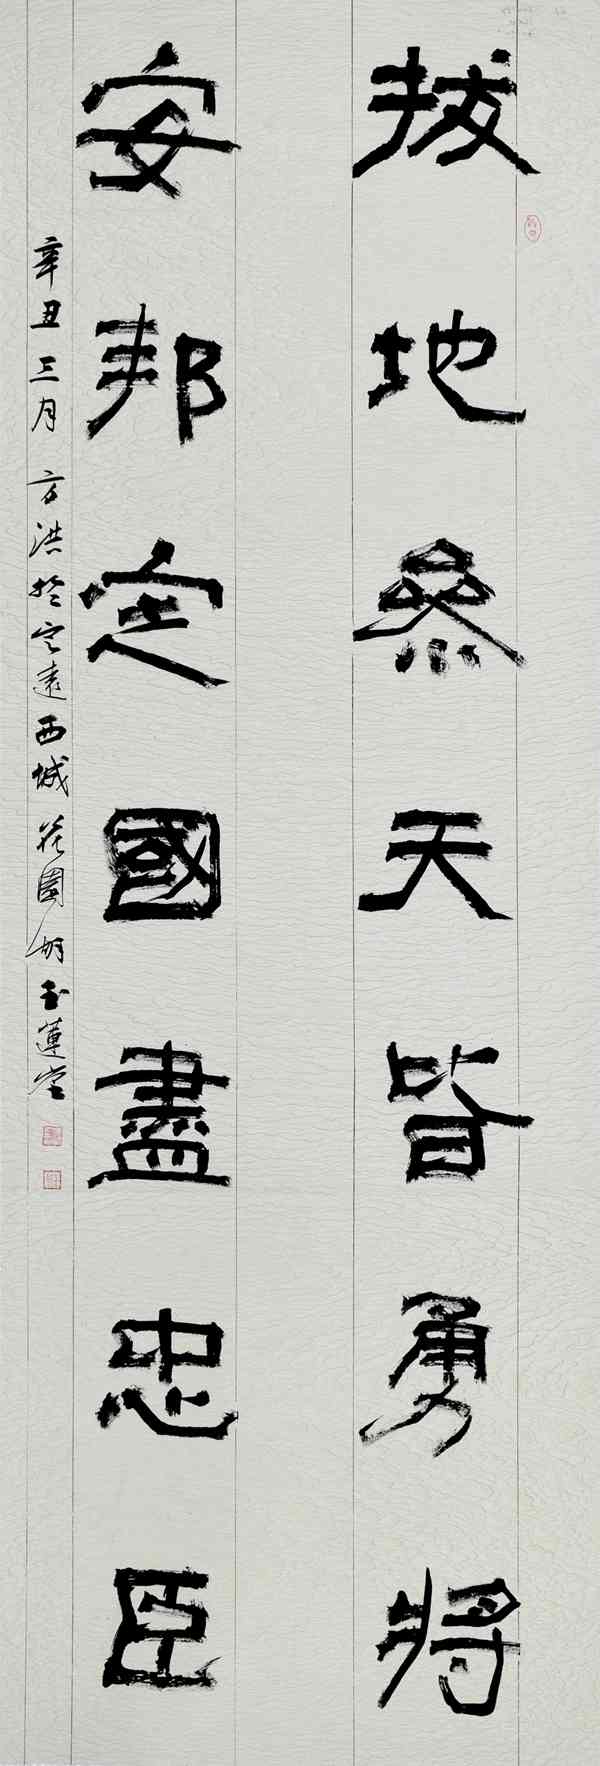 拔地參天皆勇將
安邦定國盡忠臣
辛丑三月方洪於定遠西城花園明玉蓮堂